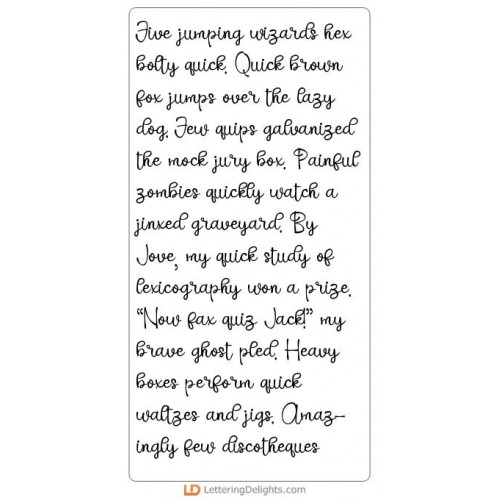 Five jumping wizards hex
bolty quick. Quick brown
fox jumps over the lazy
dog. Few quips galvanized
the mock jury box. Painful
zombies quickly watch a
jinxed graveyard. By
Jove, my quick study of
lexicography won a prize.
“Now fax quiz Jack!” my
brave ghost pled. Heavy
boxes perform quick
waltzes and jigs. Amaz-
ingly few discotheques
LD LetteringDelights.com